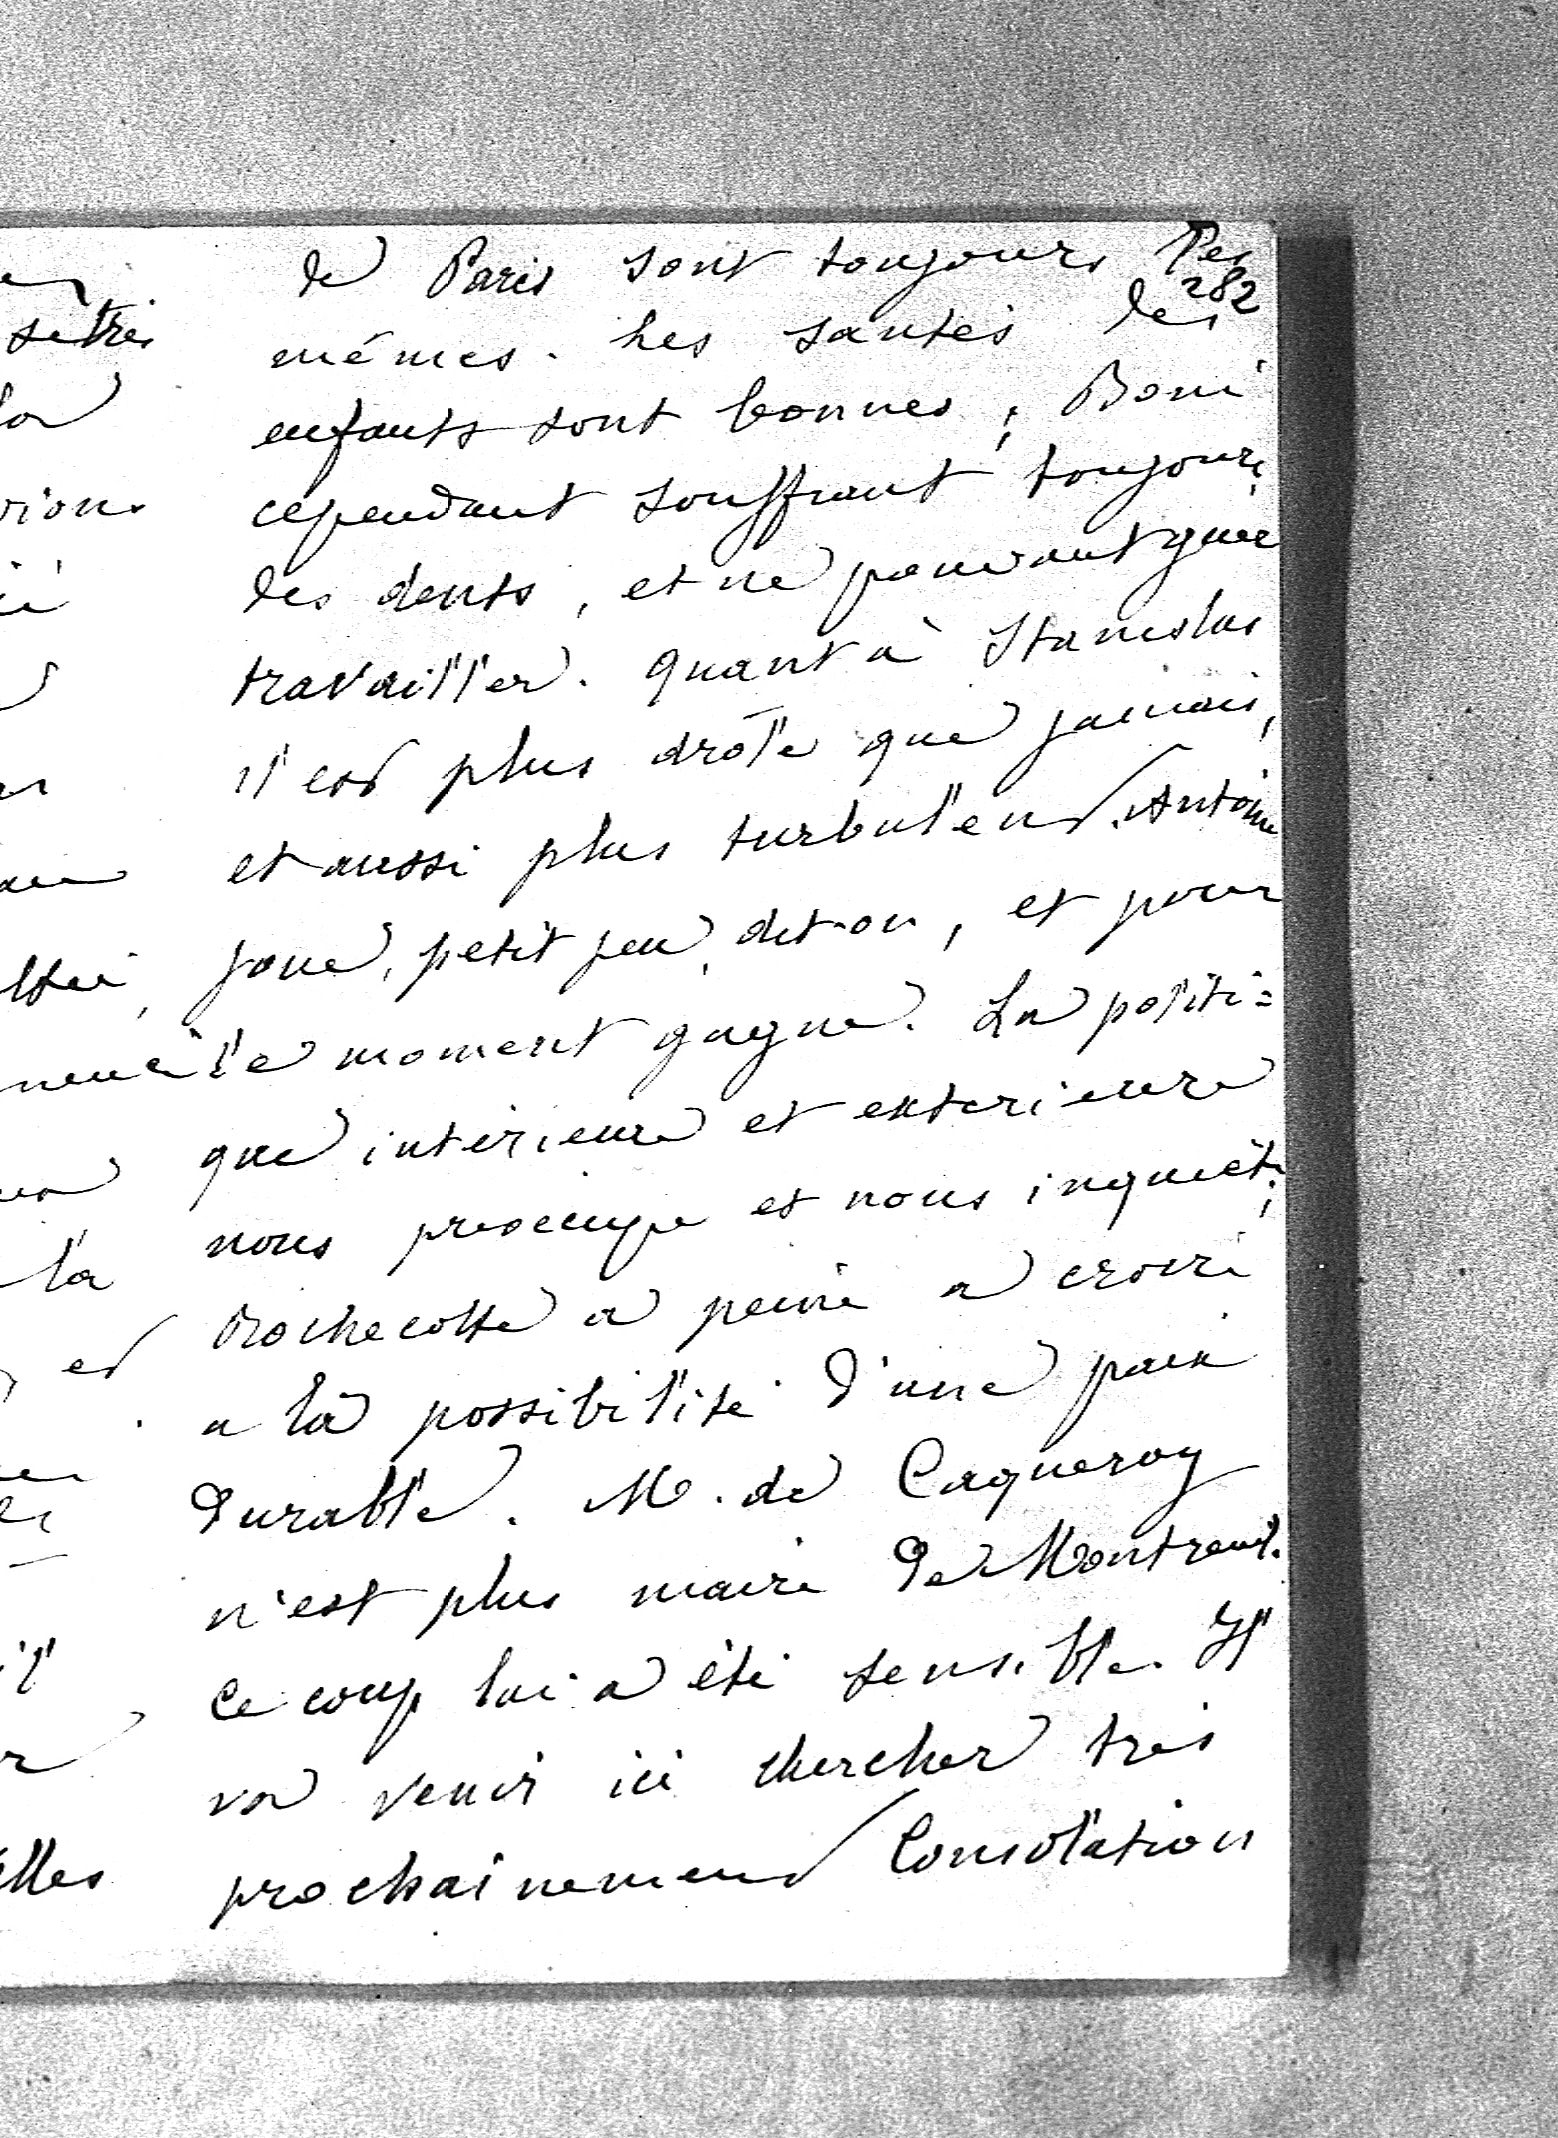 de Paris sont toujours les
282
mêmes. Les santés des
enfants sont bonnes ; Boni
cependant souffrant toujours
des dents, et ne pouvant guère
travailler. quant à Stanislas
il est plus drôle que jamais,
et aussi plus turbulent. Antoine
joue, petit jeu, dit-on, et pour
le moment gagne. La politi=
que intérieure et extérieure
nous préoccupe et nous inquiète ;
Rochecotte a peine a croire
a la possibilité d'une paix
durable. M. de Caqueray
n'est plus maire de Montreuil.
Ce coup lui a été sensible. Il
va venir ici chercher très
prochainement Consolation